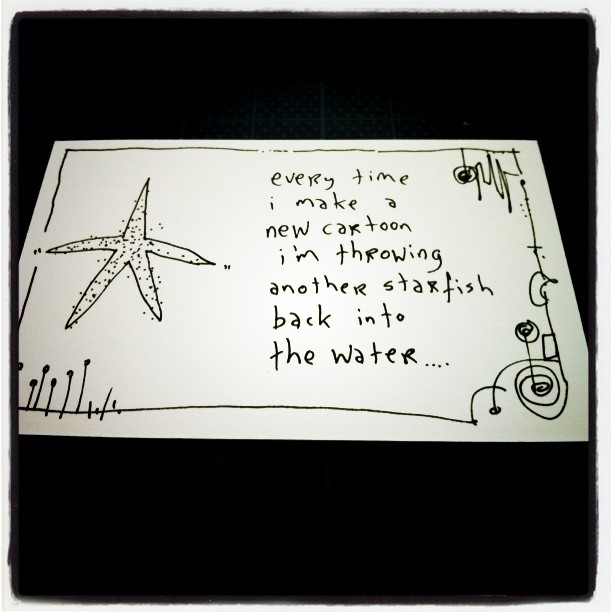 every time
i make a
new cartoon
i'm throwing
another starfish
back into
the water....